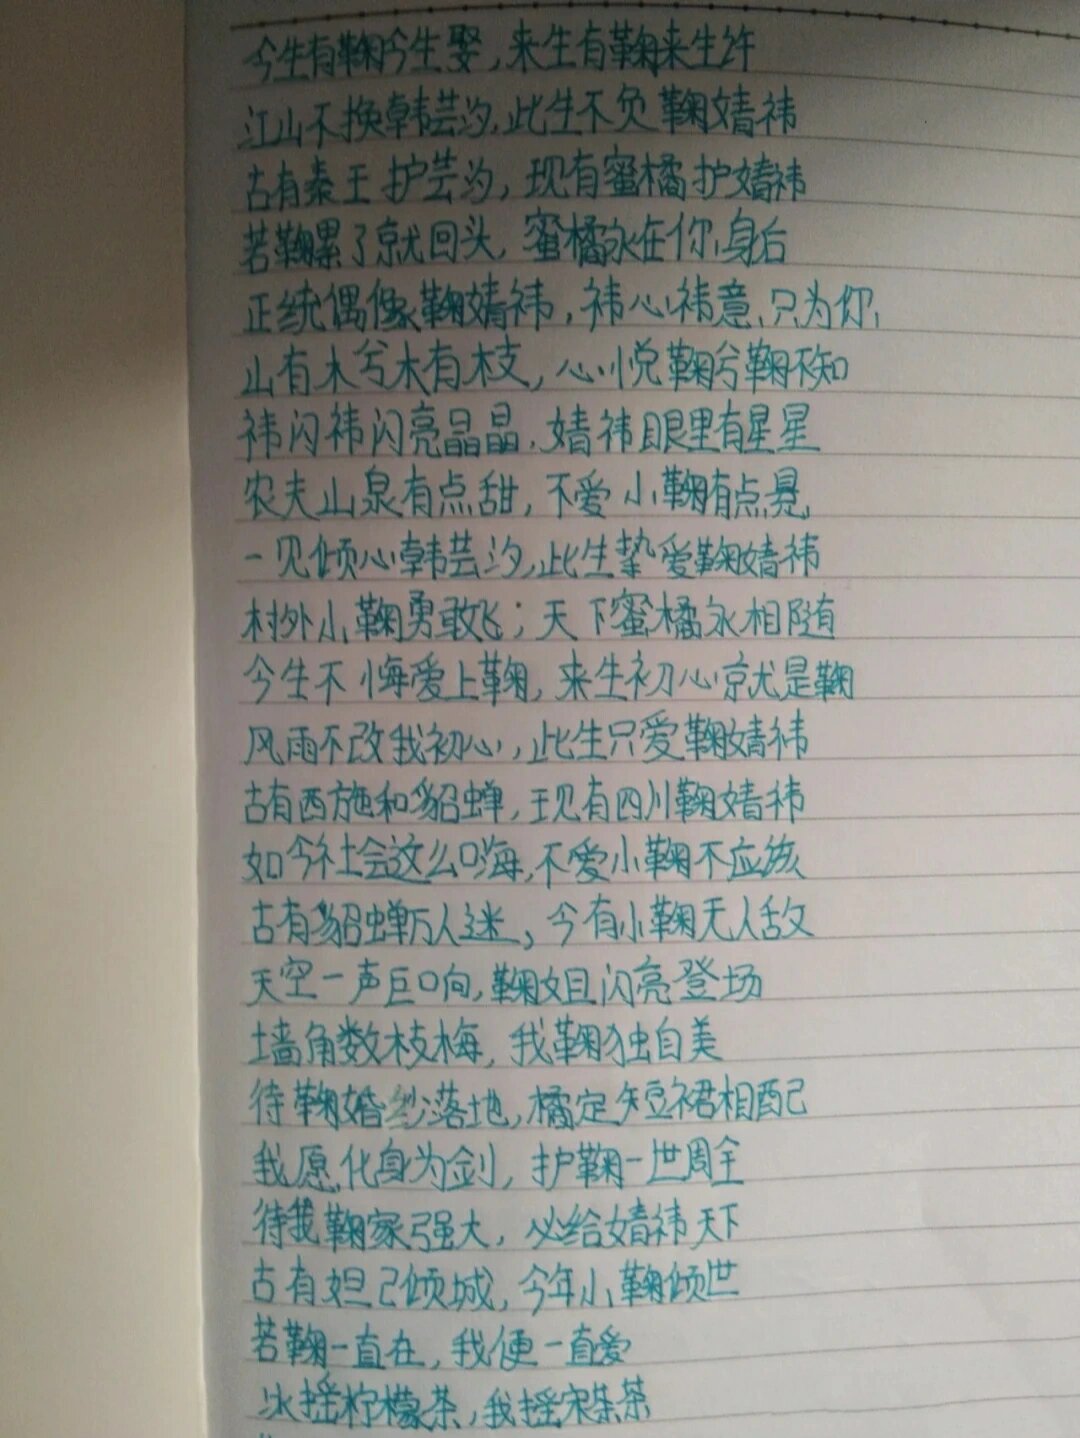 今生有鞠今生娶，来生有鞠来生许
江山不换韩芸汐，此生不负鞠婧祎
古有秦王护芸汐，现有蜜橘护婧祎
若鞠累了就回头，蜜橘永在你身后
正统偶像鞠婧祎，祎心祎意只为你
山有木兮木有枝，心悦鞠兮鞠不知
祎闪祎闪亮晶晶，婧祎眼里有星星
农夫山泉有点甜，不爱小鞠有点悬
一见倾心韩芸汐，此生挚爱鞠婧祎
村外小鞠勇敢飞；天下蜜橘永相随
今生不悔爱上鞠，来生初心就是鞠
风雨不改我初心，此生只爱鞠婧祎
古有西施和貂蝉，现有四川鞠婧祎
如今社会这么嗨，不爱小鞠不应该
古有貂蝉万人迷，今有小鞠无人敌
天空一声巨响，鞠姐闪亮登场
墙角数枝梅，我鞠独自美
待鞠婚纱落地，橘定短裙相配
我愿化身为剑，护鞠一世周全
待我鞠家强大，必给婧祎天下
古有妲己倾城，今年小鞠倾世
若鞠一直在，我便一直爱
冰摇柠檬茶，我摇宋茶茶